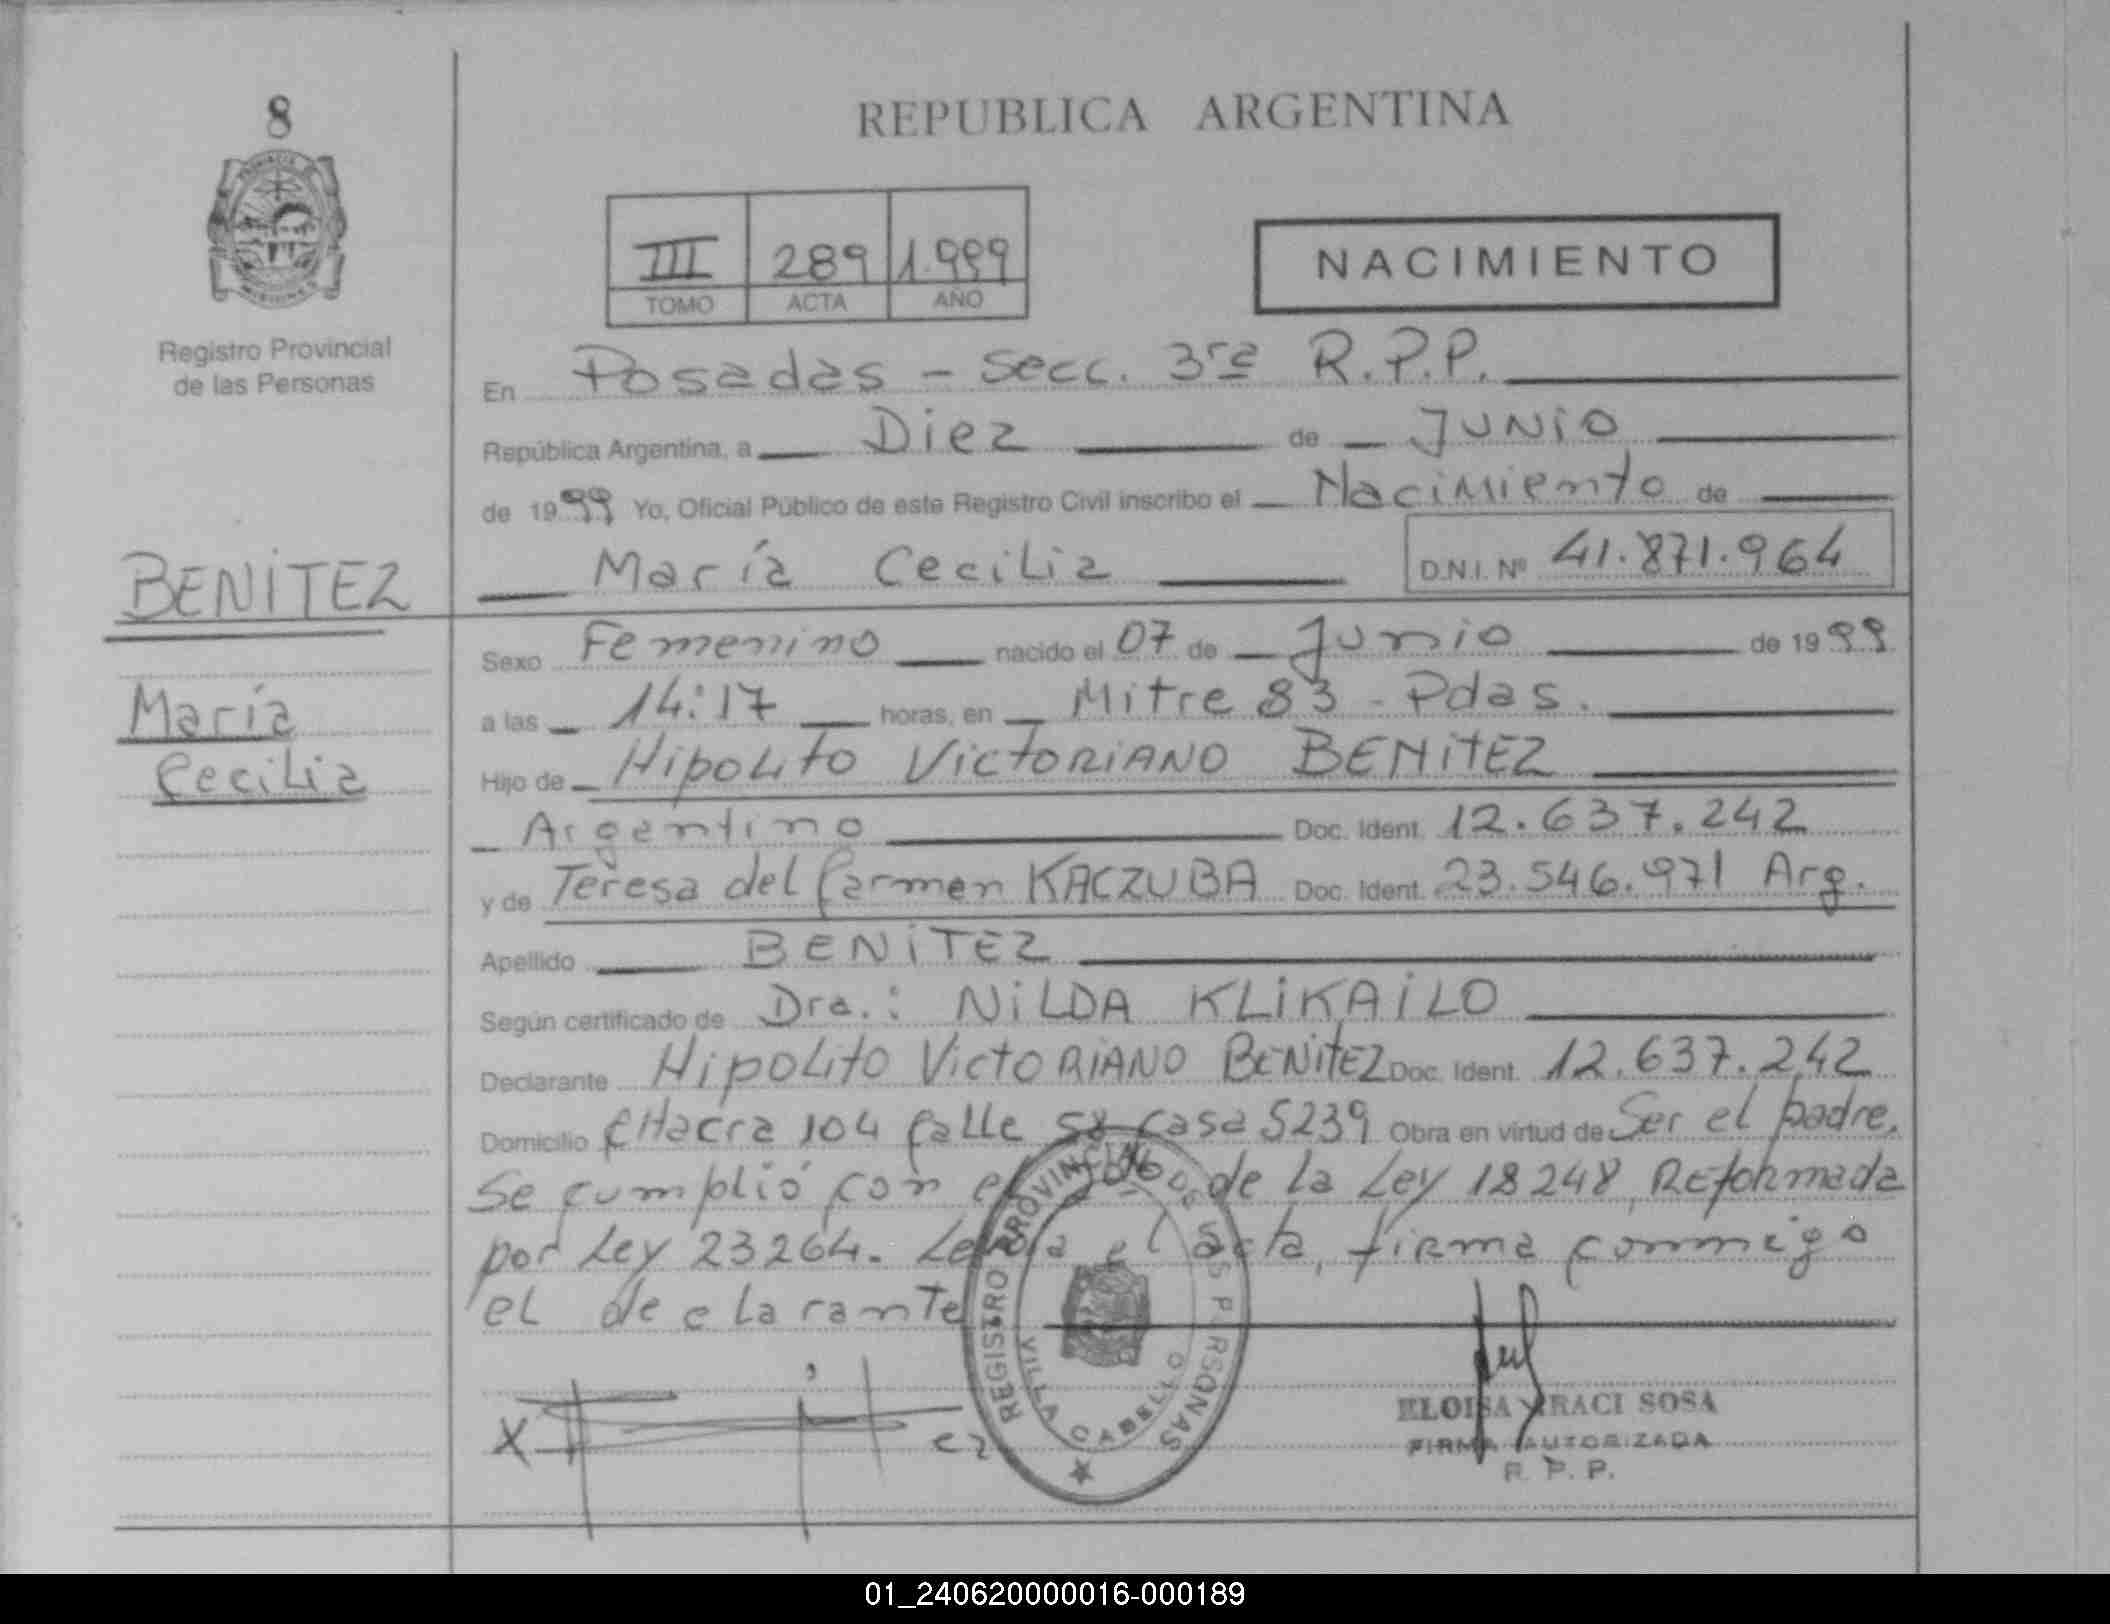 8
Registro Provincial
de las Personas
BENITEZ
María
Cecilia
REPUBLICA ARGENTINA
III 289 1.999
TOMO ACTA AÑO
NACIMIENTO
En Posadas - Secc. 3ra R.P.P.
República Argentina, a Diez de JUNIO
de 1999 Yo, Oficial Público de este Registro Civil inscribo el Nacimiento de
María Cecilia D.N.I. Nº 41.871.964
Sexo Femenino nacido el 07 de Junio de 1999
a las 14:17 horas, en Mitre 83 - Pdas.
Hijo de Hipolito Victoriano BENITEZ
Argentino Doc. Ident. 12.637.242
y de Teresa del Carmen KACZUBA Doc. Ident. 23.546.971 Arg.
Apellido BENITEZ
Según certificado de Dra.: NILDA KLIKAILO
Declarante Hipolito Victoriano BENITEZ Doc. Ident. 12.637.242
Domicilio CHacra 104 Calle 58 Casa 5239 Obra en virtud de Ser el padre.
Se cumplió con el de la Ley 18248, Reformada
por Ley 23264. Leída el acta, firma conmigo
el declarante
REGISTRO PROVINCIAL DE LAS PERSONAS
VILLA CABELLO
X
ELOISA YRACI SOSA
FIRMA AUTORIZADA
R. P. P.
01_240620000016-000189